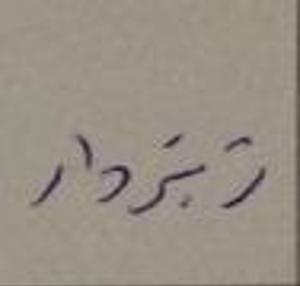 ز بزدار